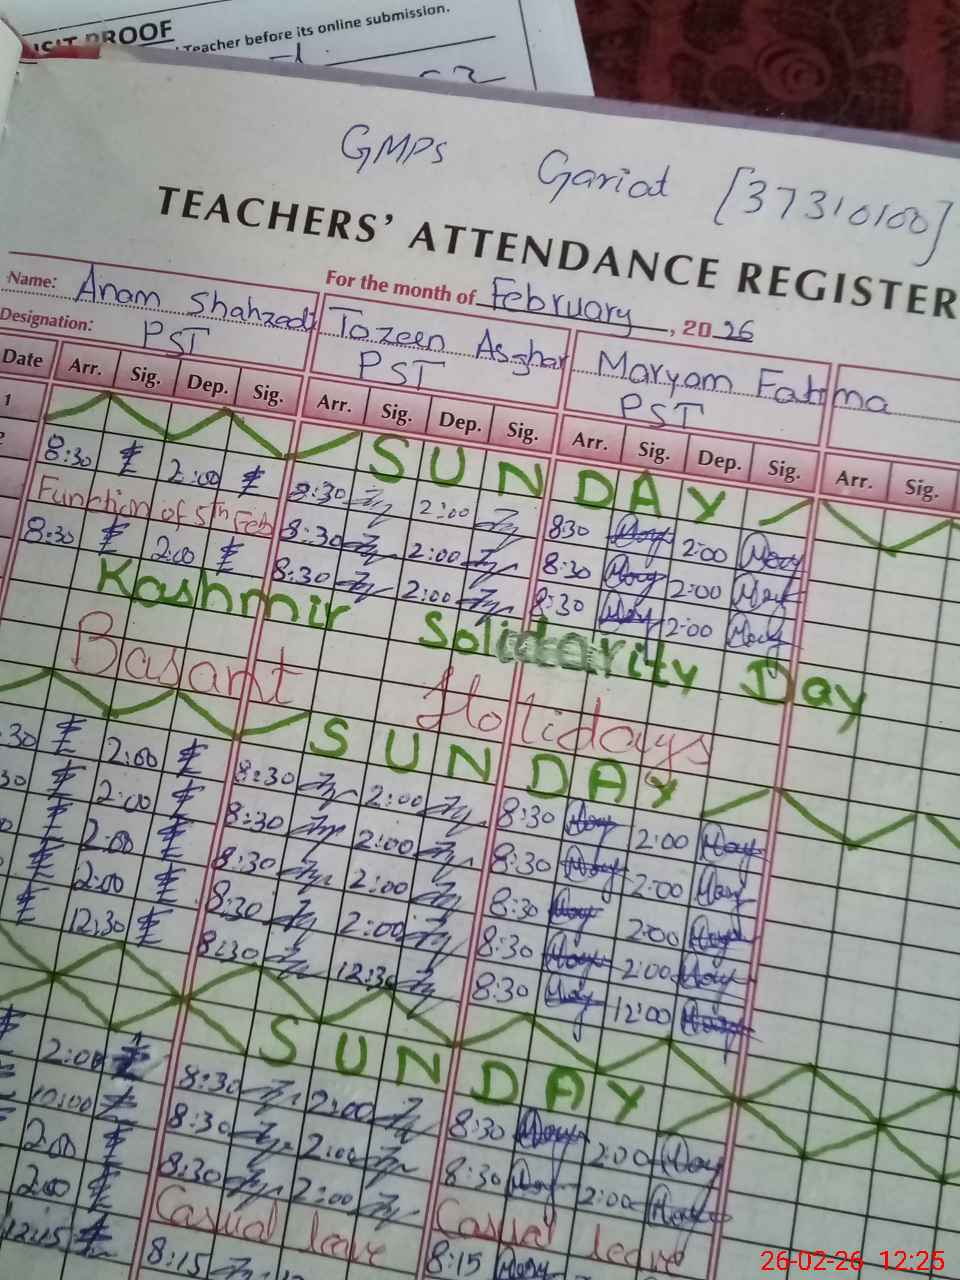 VISIT PROOF
Teacher before its online submission.
GMPS Gariat [37310100]
TEACHERS' ATTENDANCE REGISTER
Name: Anam Shahzadi For the month of February, 2026
Designation: PST Tozeen Asghar PST Maryam Fatima PST
Date Arr. Sig. Dep. Sig. Arr. Sig. Dep. Sig. Arr. Sig. Dep. Sig. Arr. Sig.
1 SUNDAY
2 8:30 2:00 8:30 2:00 8:30 2:00
Function of 5th Feb 8:30 2:00 8:30 2:00
8:30 2:00 8:30 2:00 8:30 2:00
Kashmir Solidarity Day
Basant Holidays
SUNDAY
:30 2:00 8:30 2:00 8:30 2:00
30 2:00 8:30 2:00 8:30 2:00
2:00 8:30 2:00 8:30 2:00
2:00 8:30 2:00 8:30 2:00
12:30 8:30 12:30 8:30 12:00
SUNDAY
2:00 8:30 2:00 8:30 2:00
10:00 8:30 2:00 8:30 2:00
2:00 8:30 2:00 Casual leave
2:00 Casual leave 8:15
12:15 8:15
26-02-26 12:25